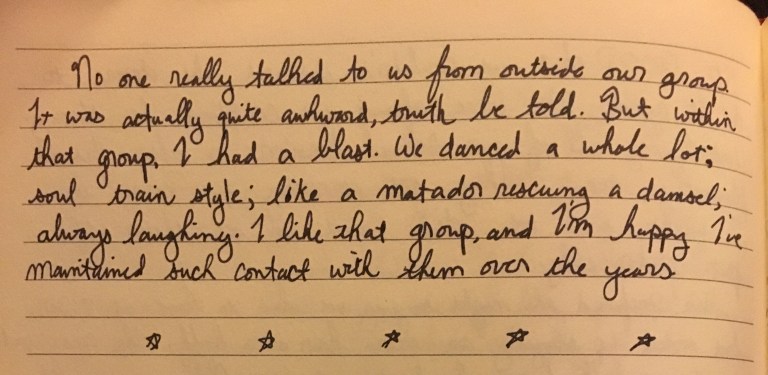 No one really talked to us from outside our group.
It was actually quite awkward, truth be told. But within
that group, I had a blast. We danced a whole lot;
soul train style; like a matador rescuing a damsel;
always laughing. I like that group, and I'm happy I've
maintained such contact with them over the years
☆ ☆ ☆ ☆ ☆